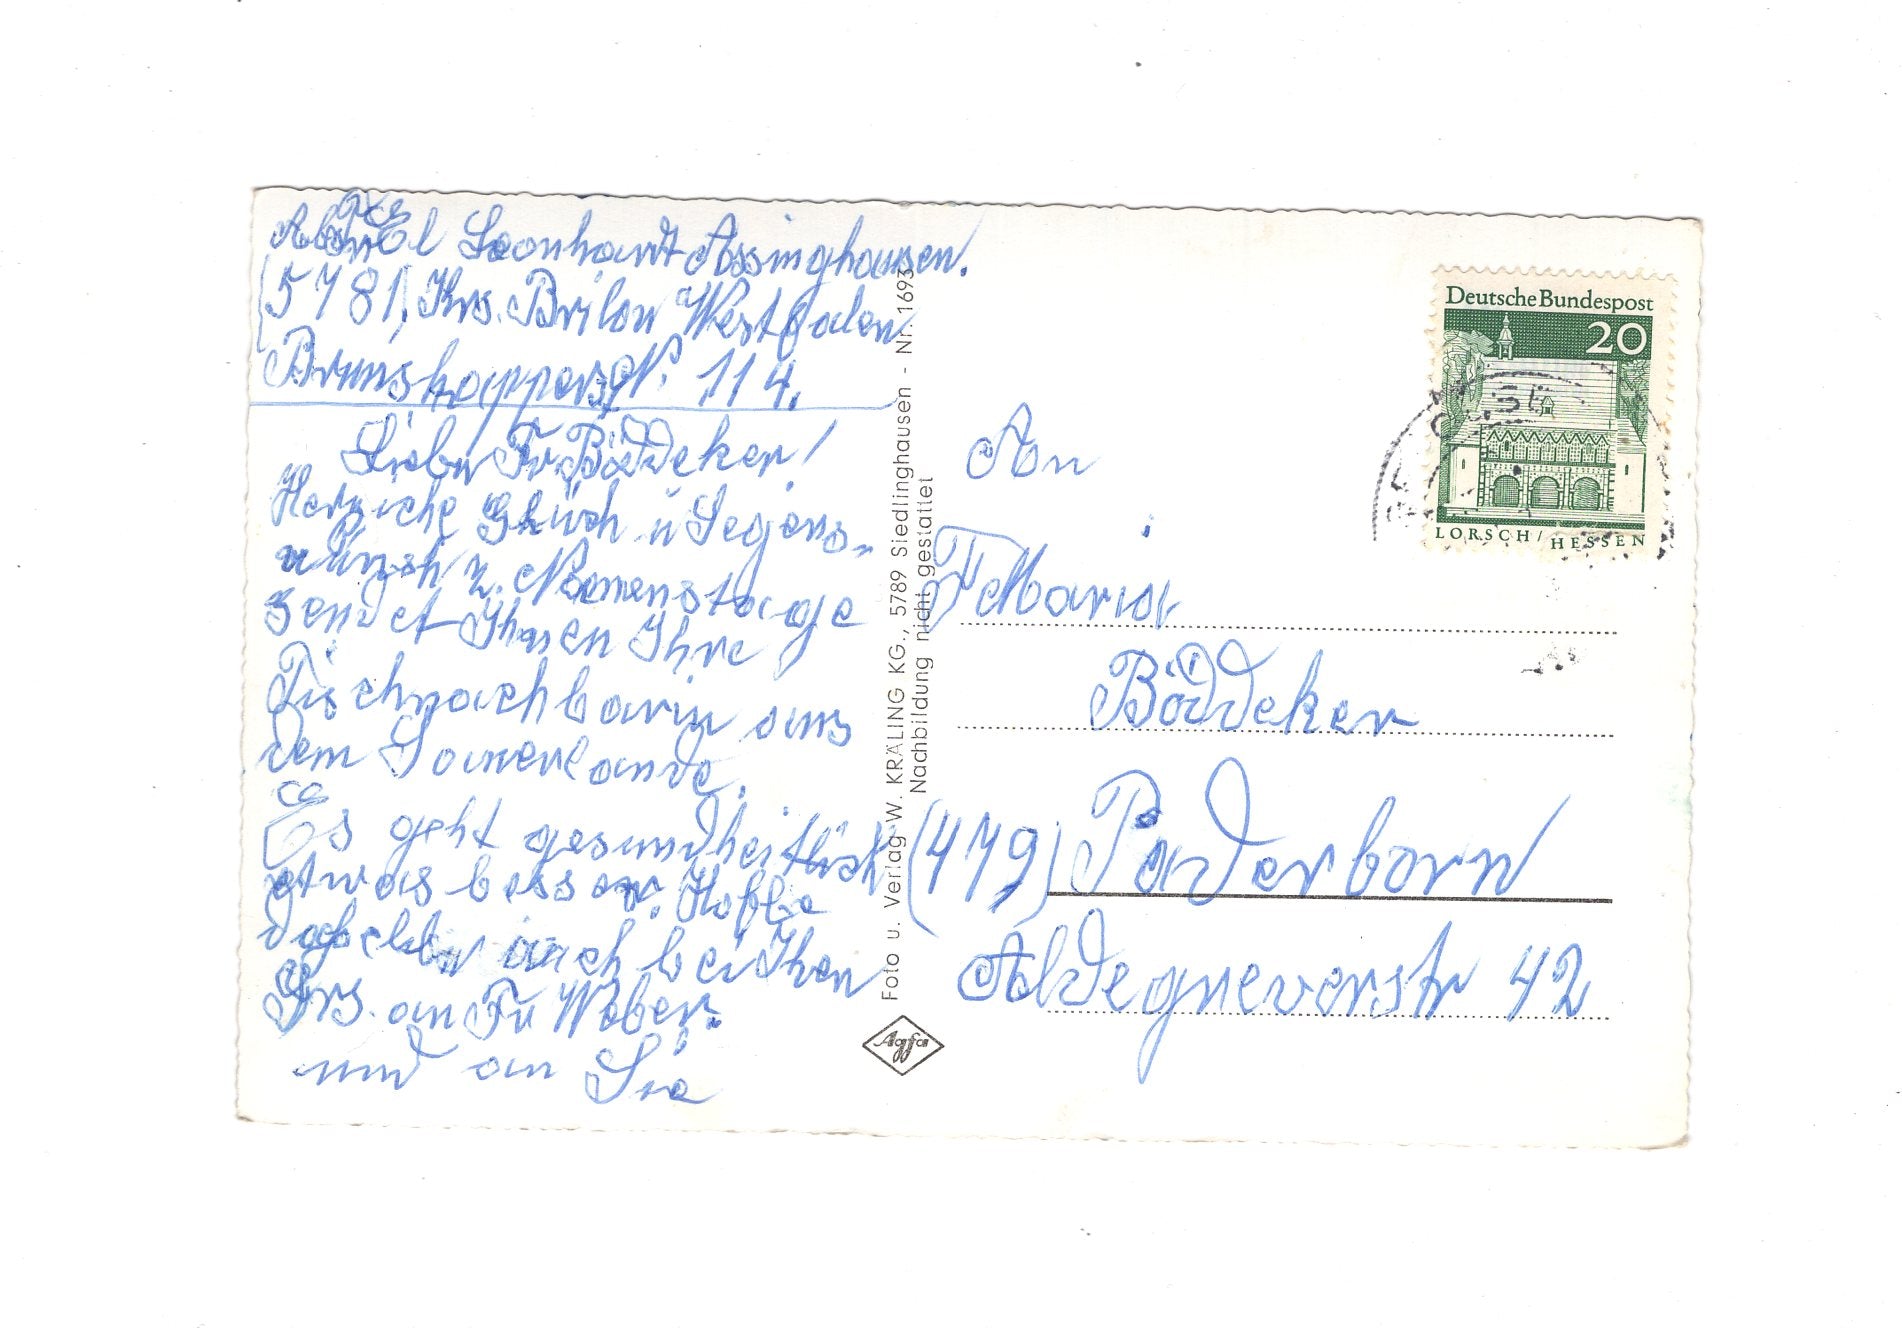 Abs. El Leonhardt Assinghausen.
(5781) Krs. Brilon Westfalen
Brunskapperstr. 114.
Liebe Fr. Böddeker!
Herzliche Glück u Segens-
wünsch z. Namenstage
sendet Ihnen Ihre
Tischnachbarin aus
dem Sauerlande.
Es geht gesundheitlich
etwas besser. Hoffe
dasselbe auch bei Ihnen
Grs. an Fr Weber
und an Sie
Foto u. Verlag W. KRÄLING KG., 5789 Siedlinghausen - Nr. 1693
Nachbildung nicht gestattet
Agfa
Deutsche Bundespost
20
LORSCH / HESSEN
An
F Maria
Böddeker
(479) Paderborn
Aldegreverstr 42